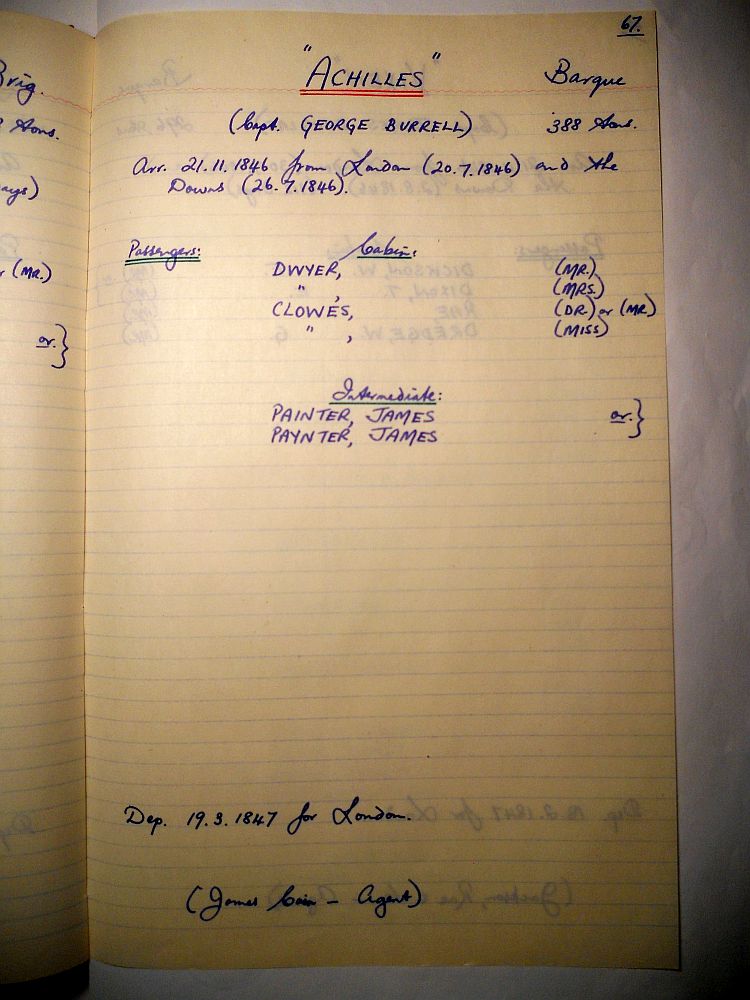 67.
"ACHILLES" Barque
(Capt. GEORGE BURRELL) 388 tons.
Arr. 21.11.1846 from London (20.7.1846) and the
Downs (26.7.1846).
Passengers: Cabin:
DWYER, (MR.)
" , (MRS.)
CLOWES, (DR.) or (MR)
" , (MISS)
Intermediate:
PAINTER, JAMES or. }
PAYNTER, JAMES
Dep. 19.3.1847 for London.
(James Cain - Agent)
Brig.
tons.
ays)
(MR.)
or. }